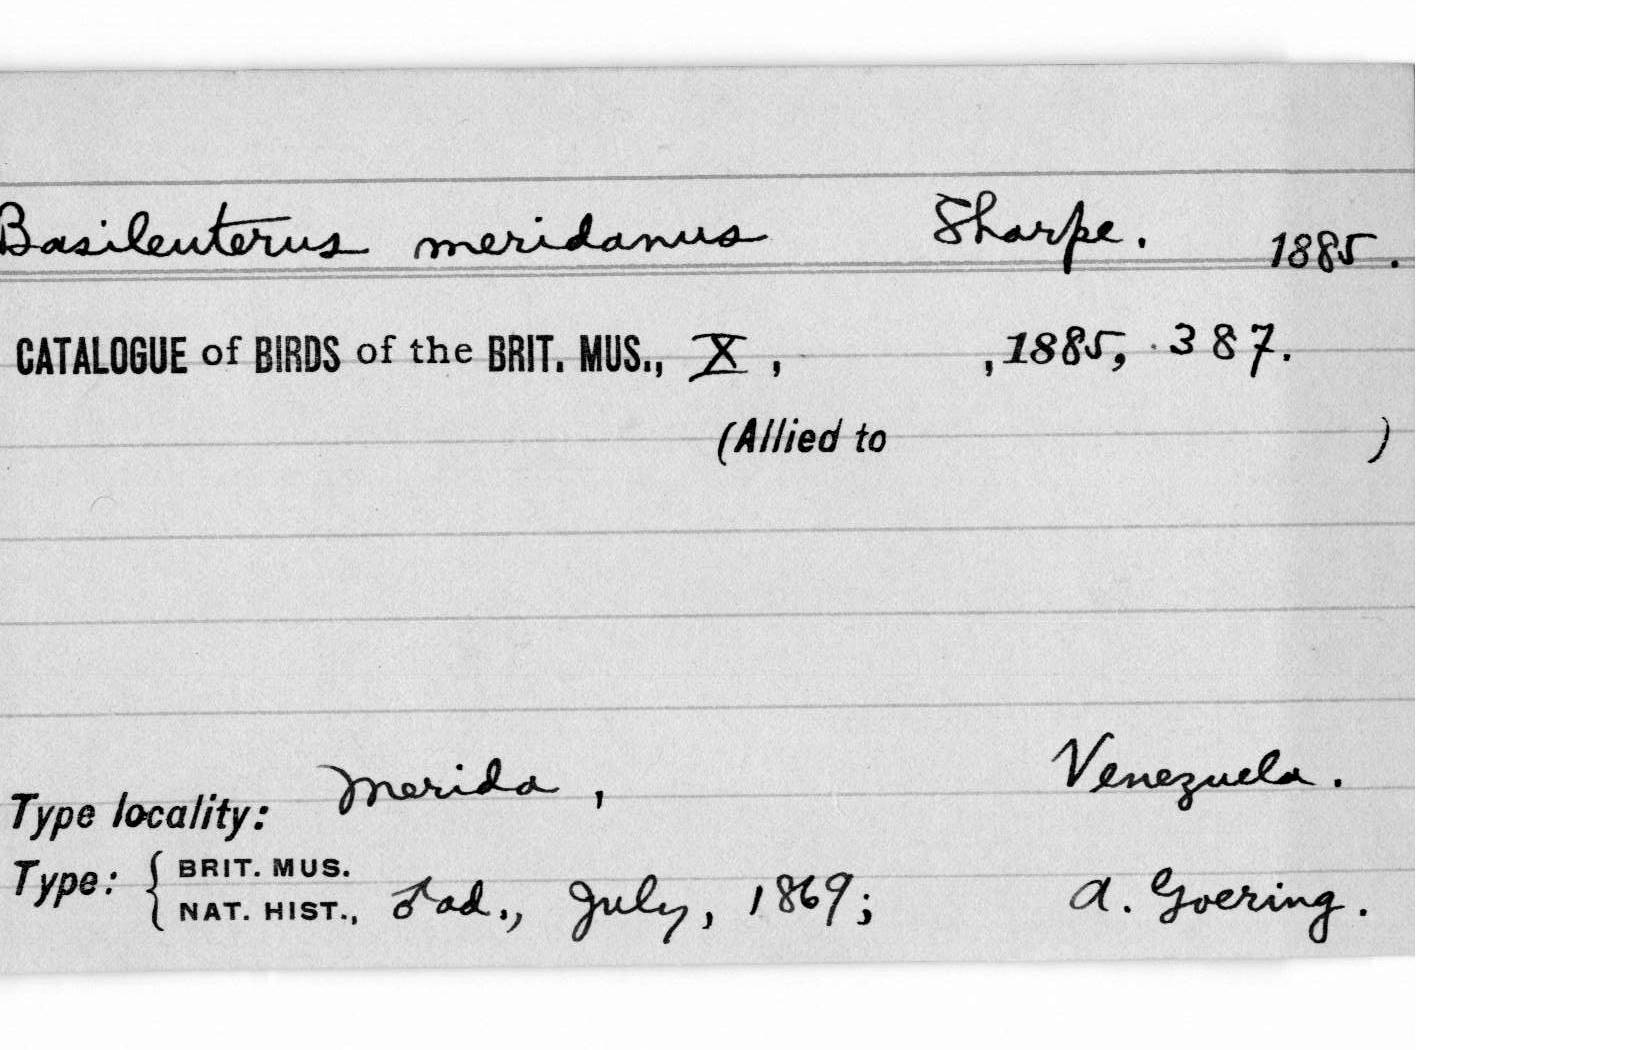 Basileuterus meridanus Sharpe. 1885.
CATALOGUE of BIRDS of the BRIT. MUS., X, , 1885, 387.
(Allied to )
Type locality: Merida, Venezuela.
Type: { BRIT. MUS. NAT. HIST., ♂ ad., July, 1869; A. Goering.